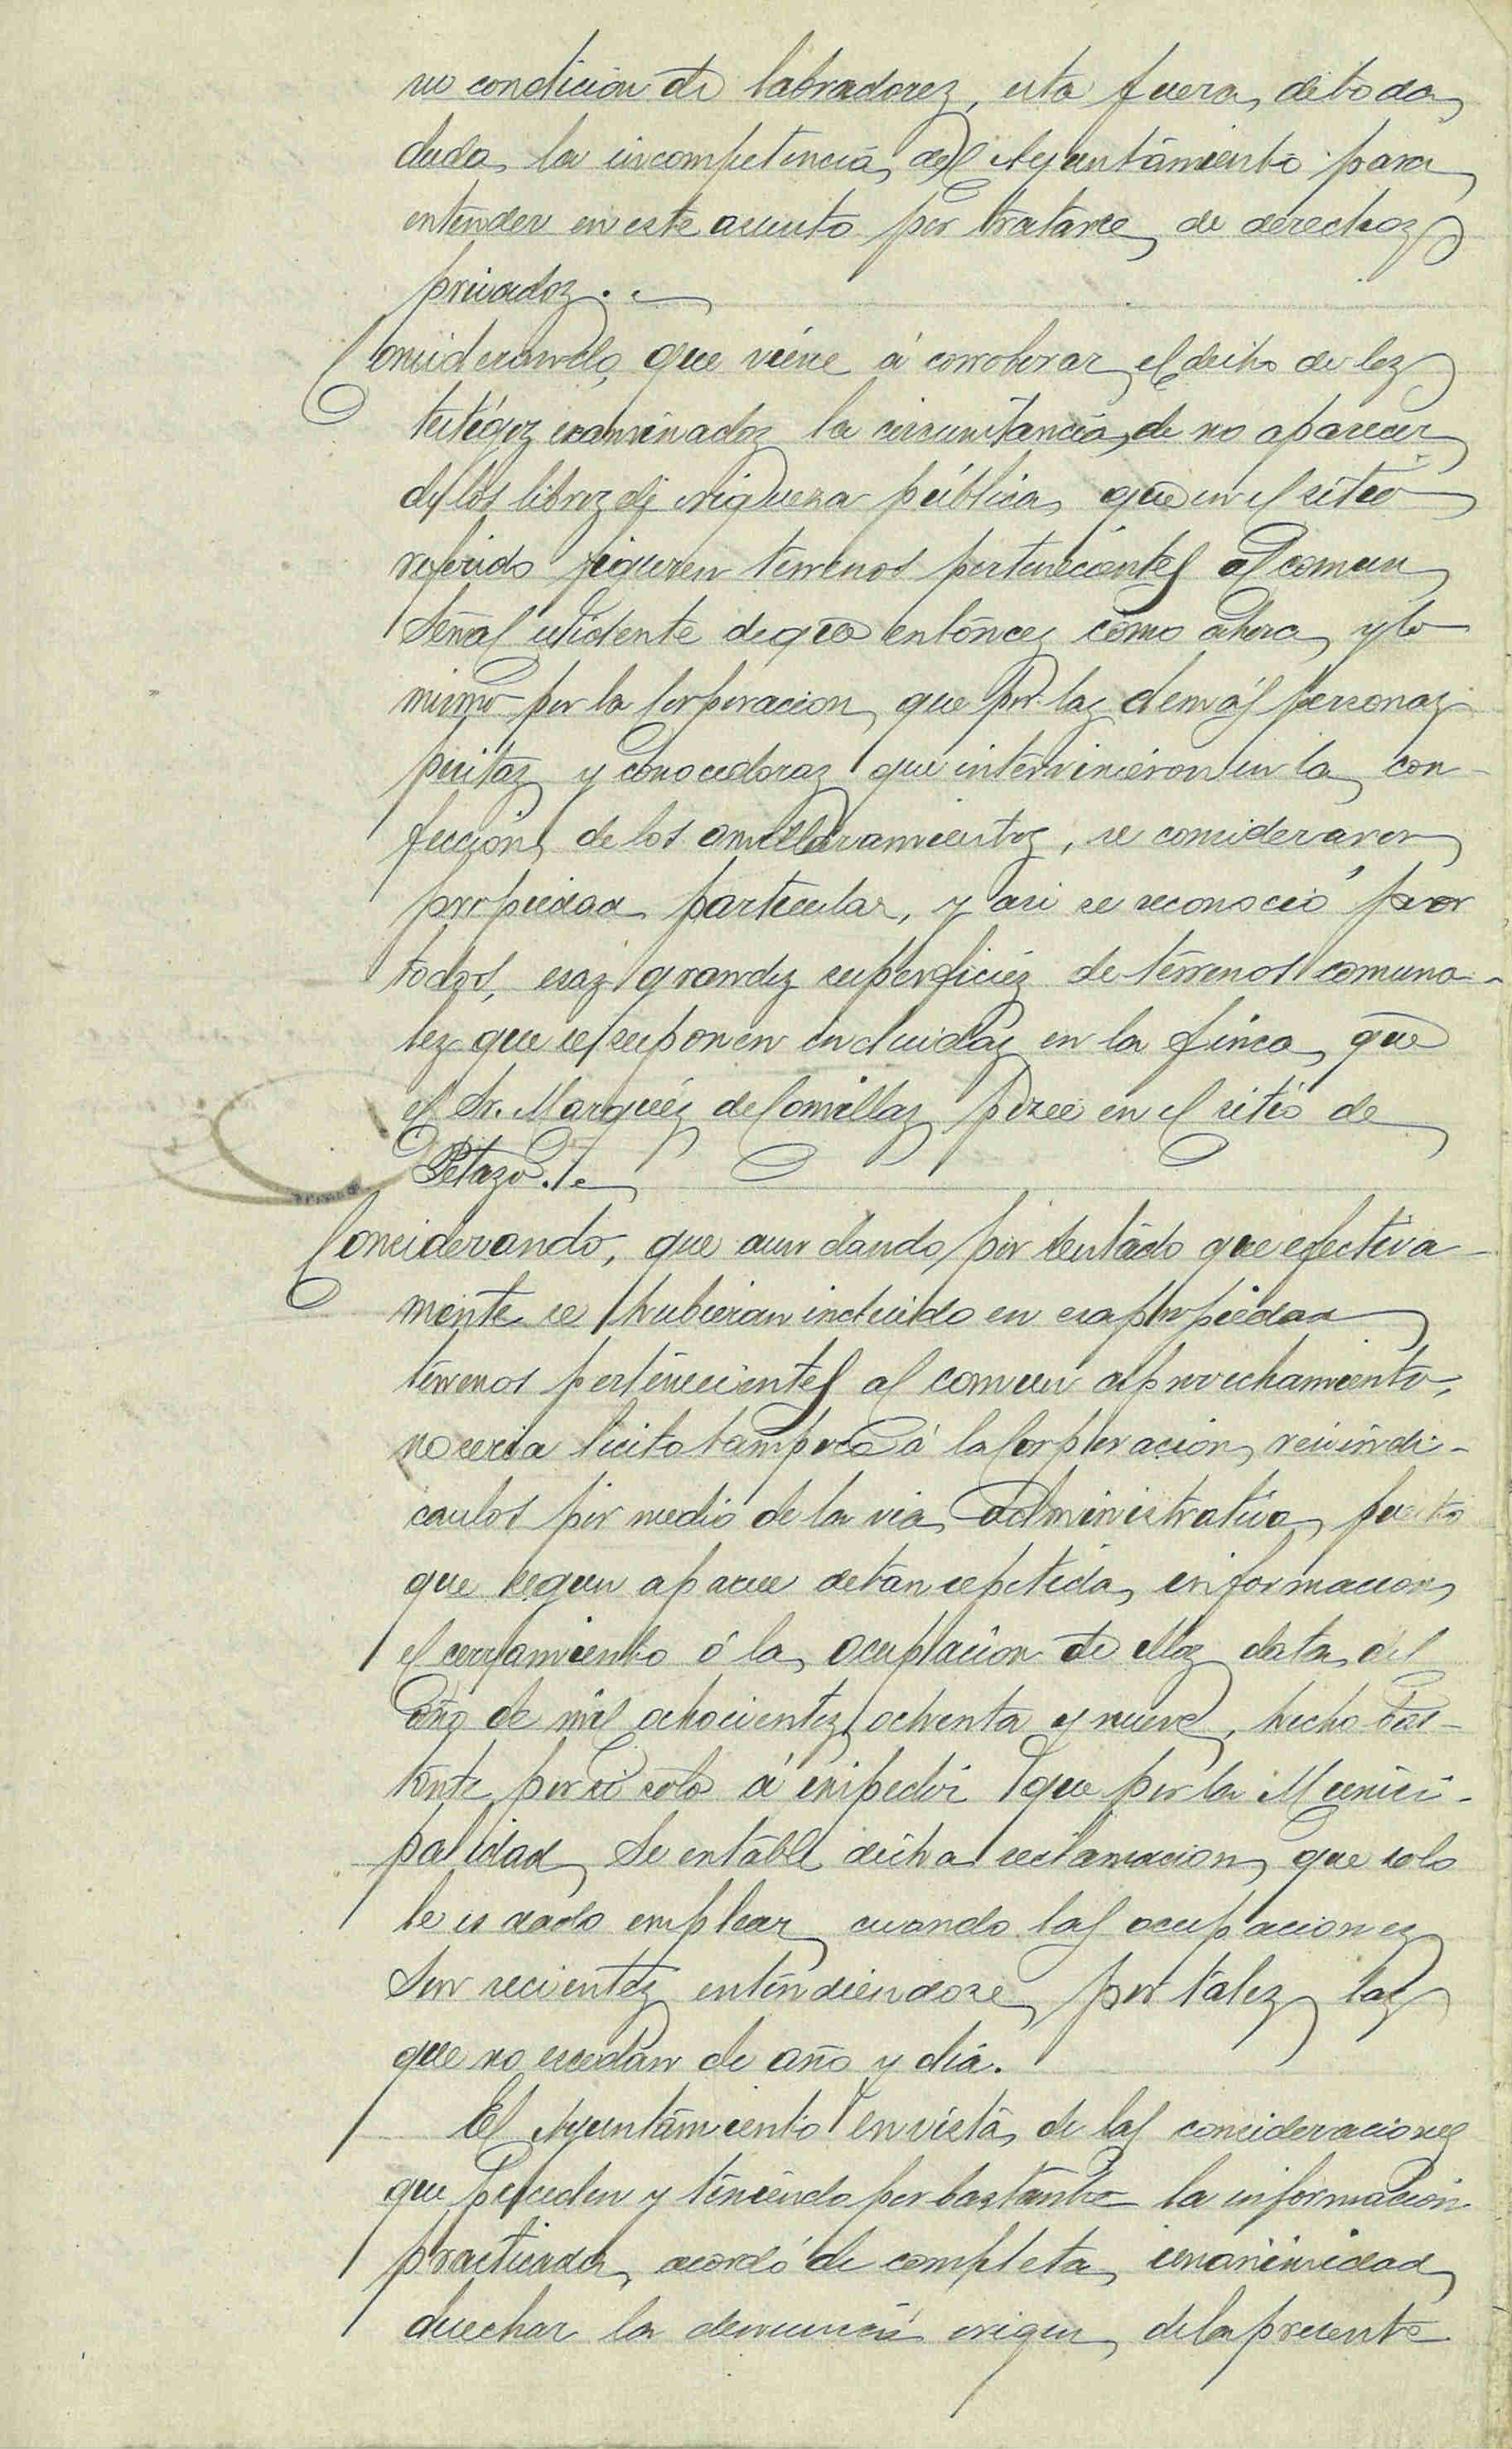 su condición de labradorez, esta fuera, de toda,
duda, la incompetencia, del Ayuntámiento para,
enténder en este asunto por tratarse, de derechoz
privadoz..
Considerando, que viene á corroborar, el dicho de loz
testigoz examinadoz la circunstancia, de no aparecer,
de los libroz de riqueza pública, que en el sitio
referido figuren terrenos pertenecientes al comun,
Señal evidente de que entóncez cómo ahora, y lo
mismo por la Corporacion, que por laz demás personaz
peritaz y conocedoraz que intervinieron en la, con-
feccion, de los amillaramientoz, se consideraron,
propiedad particular, y asi se reconoció por
todos, esaz grandez superficiez de térrenos comuna-
lez que se suponen incluidaz en la finca, que
el Sr. Marquéz de Comillaz posee en el sitio de
Petazo./.
Considerando, que aun dando por sentádo que efectiva-
mente se hubieran incluido en esa propiedad
térrenos pertenecientes al comun aprovechamiento,
no seria licito tampoco á la Corporacion, reivindi-
carlos por medio de la via, administrativa, puesto
que segun aparece de tan repetida, informacion,
el cerramiento ó la, ocupacion de elloz data, del
año de mil ochocientoz, ochenta y nueve, hecho bas-
tante por si solo á impedir que por la Munici-
palidad, Se entable dicha reclamacion, que solo
le es dado emplear, cuando las ocupacionez
Son recientez, enténdiendose, por talez, las
que no escedan de año y diá.
El Ayuntámiento en vista, de las consideraciones
que preceden y teniendo por bastante la informacion
practicada, acordó de completa, unanimidad,
desechar la denuncia origen, de la presente